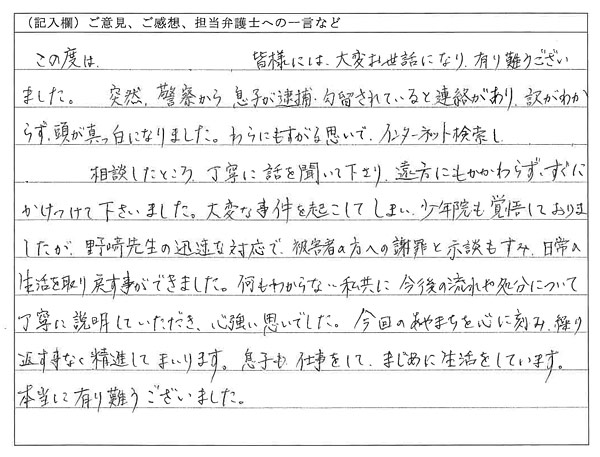 （記入欄）ご意見、ご感想、担当弁護士への一言など
この度は、 皆様には、大変お世話になり、有り難うござい
ました。 突然、警察から息子が逮捕・勾留されていると連絡があり、訳がわか
らず、頭が真っ白になりました。わらにもすがる思いで、インターネット検索し
相談したところ、丁寧に話を聞いて下さり、遠方にもかかわらず、すぐに
かけつけて下さいました。大変な事件を起こしてしまい、少年院も覚悟しておりま
したが、野﨑先生の迅速な対応で、被害者の方への謝罪と示談もすみ、日常の
生活を取り戻す事ができました。何もわからない私共に今後の流れや処分について
丁寧に説明していただき、心強い思いでした。今回のあやまちを心に刻み、繰り
返す事なく精進してまいります。息子も仕事をして、まじめに生活をしています。
本当に有り難うございました。